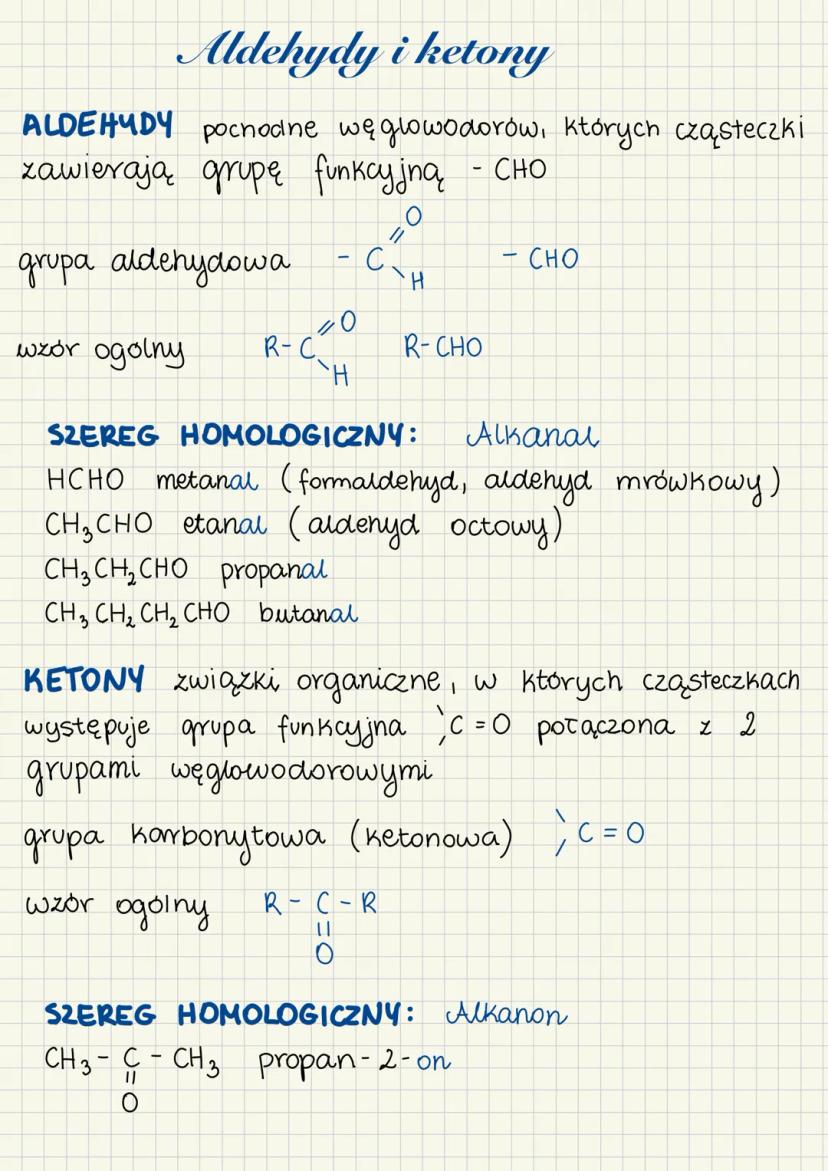 Aldehydy i ketony
ALDEHYDY pochodne węglowodorów, których cząsteczki
zawierają grupę funkcyjną - CHO
grupa aldehydowa - C =O \H - CHO
wzór ogólny R-C =O \H R-CHO
SZEREG HOMOLOGICZNY: Alkanal
HCHO metanal (formaldehyd, aldehyd mrówkowy)
CH₃CHO etanal (aldehyd octowy)
CH₃CH₂CHO propanal
CH₃CH₂CH₂CHO butanal
KETONY związki organiczne, w których cząsteczkach
występuje grupa funkcyjna \/C=O połączona z 2
grupami węglowodorowymi
grupa karbonylowa (ketonowa) \/C=O
wzór ogólny R - C - R
||
O
SZEREG HOMOLOGICZNY: Alkanon
CH₃ - C - CH₃ propan-2-on
||
O